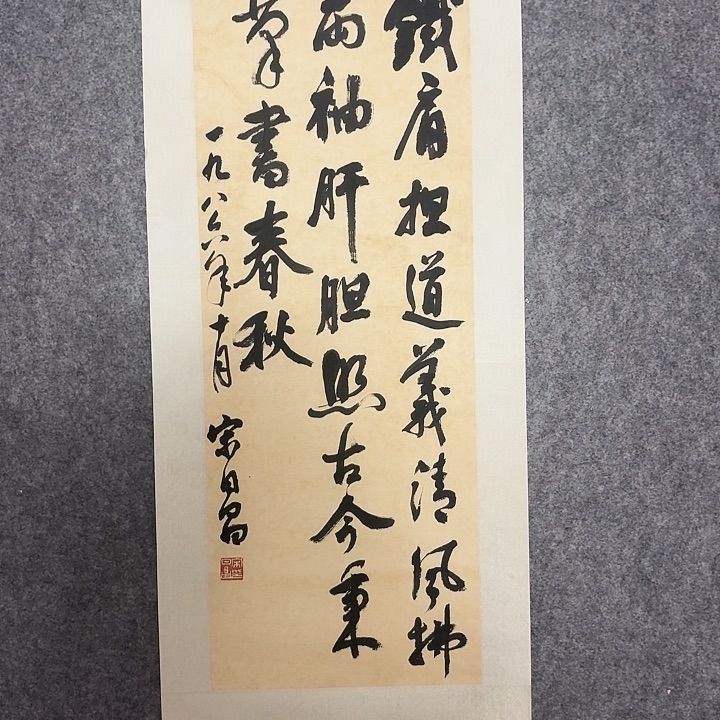 鐵肩担道義清風拂
两袖肝胆照古今秉
筆書春秋
一九八六年十月
宗日昌